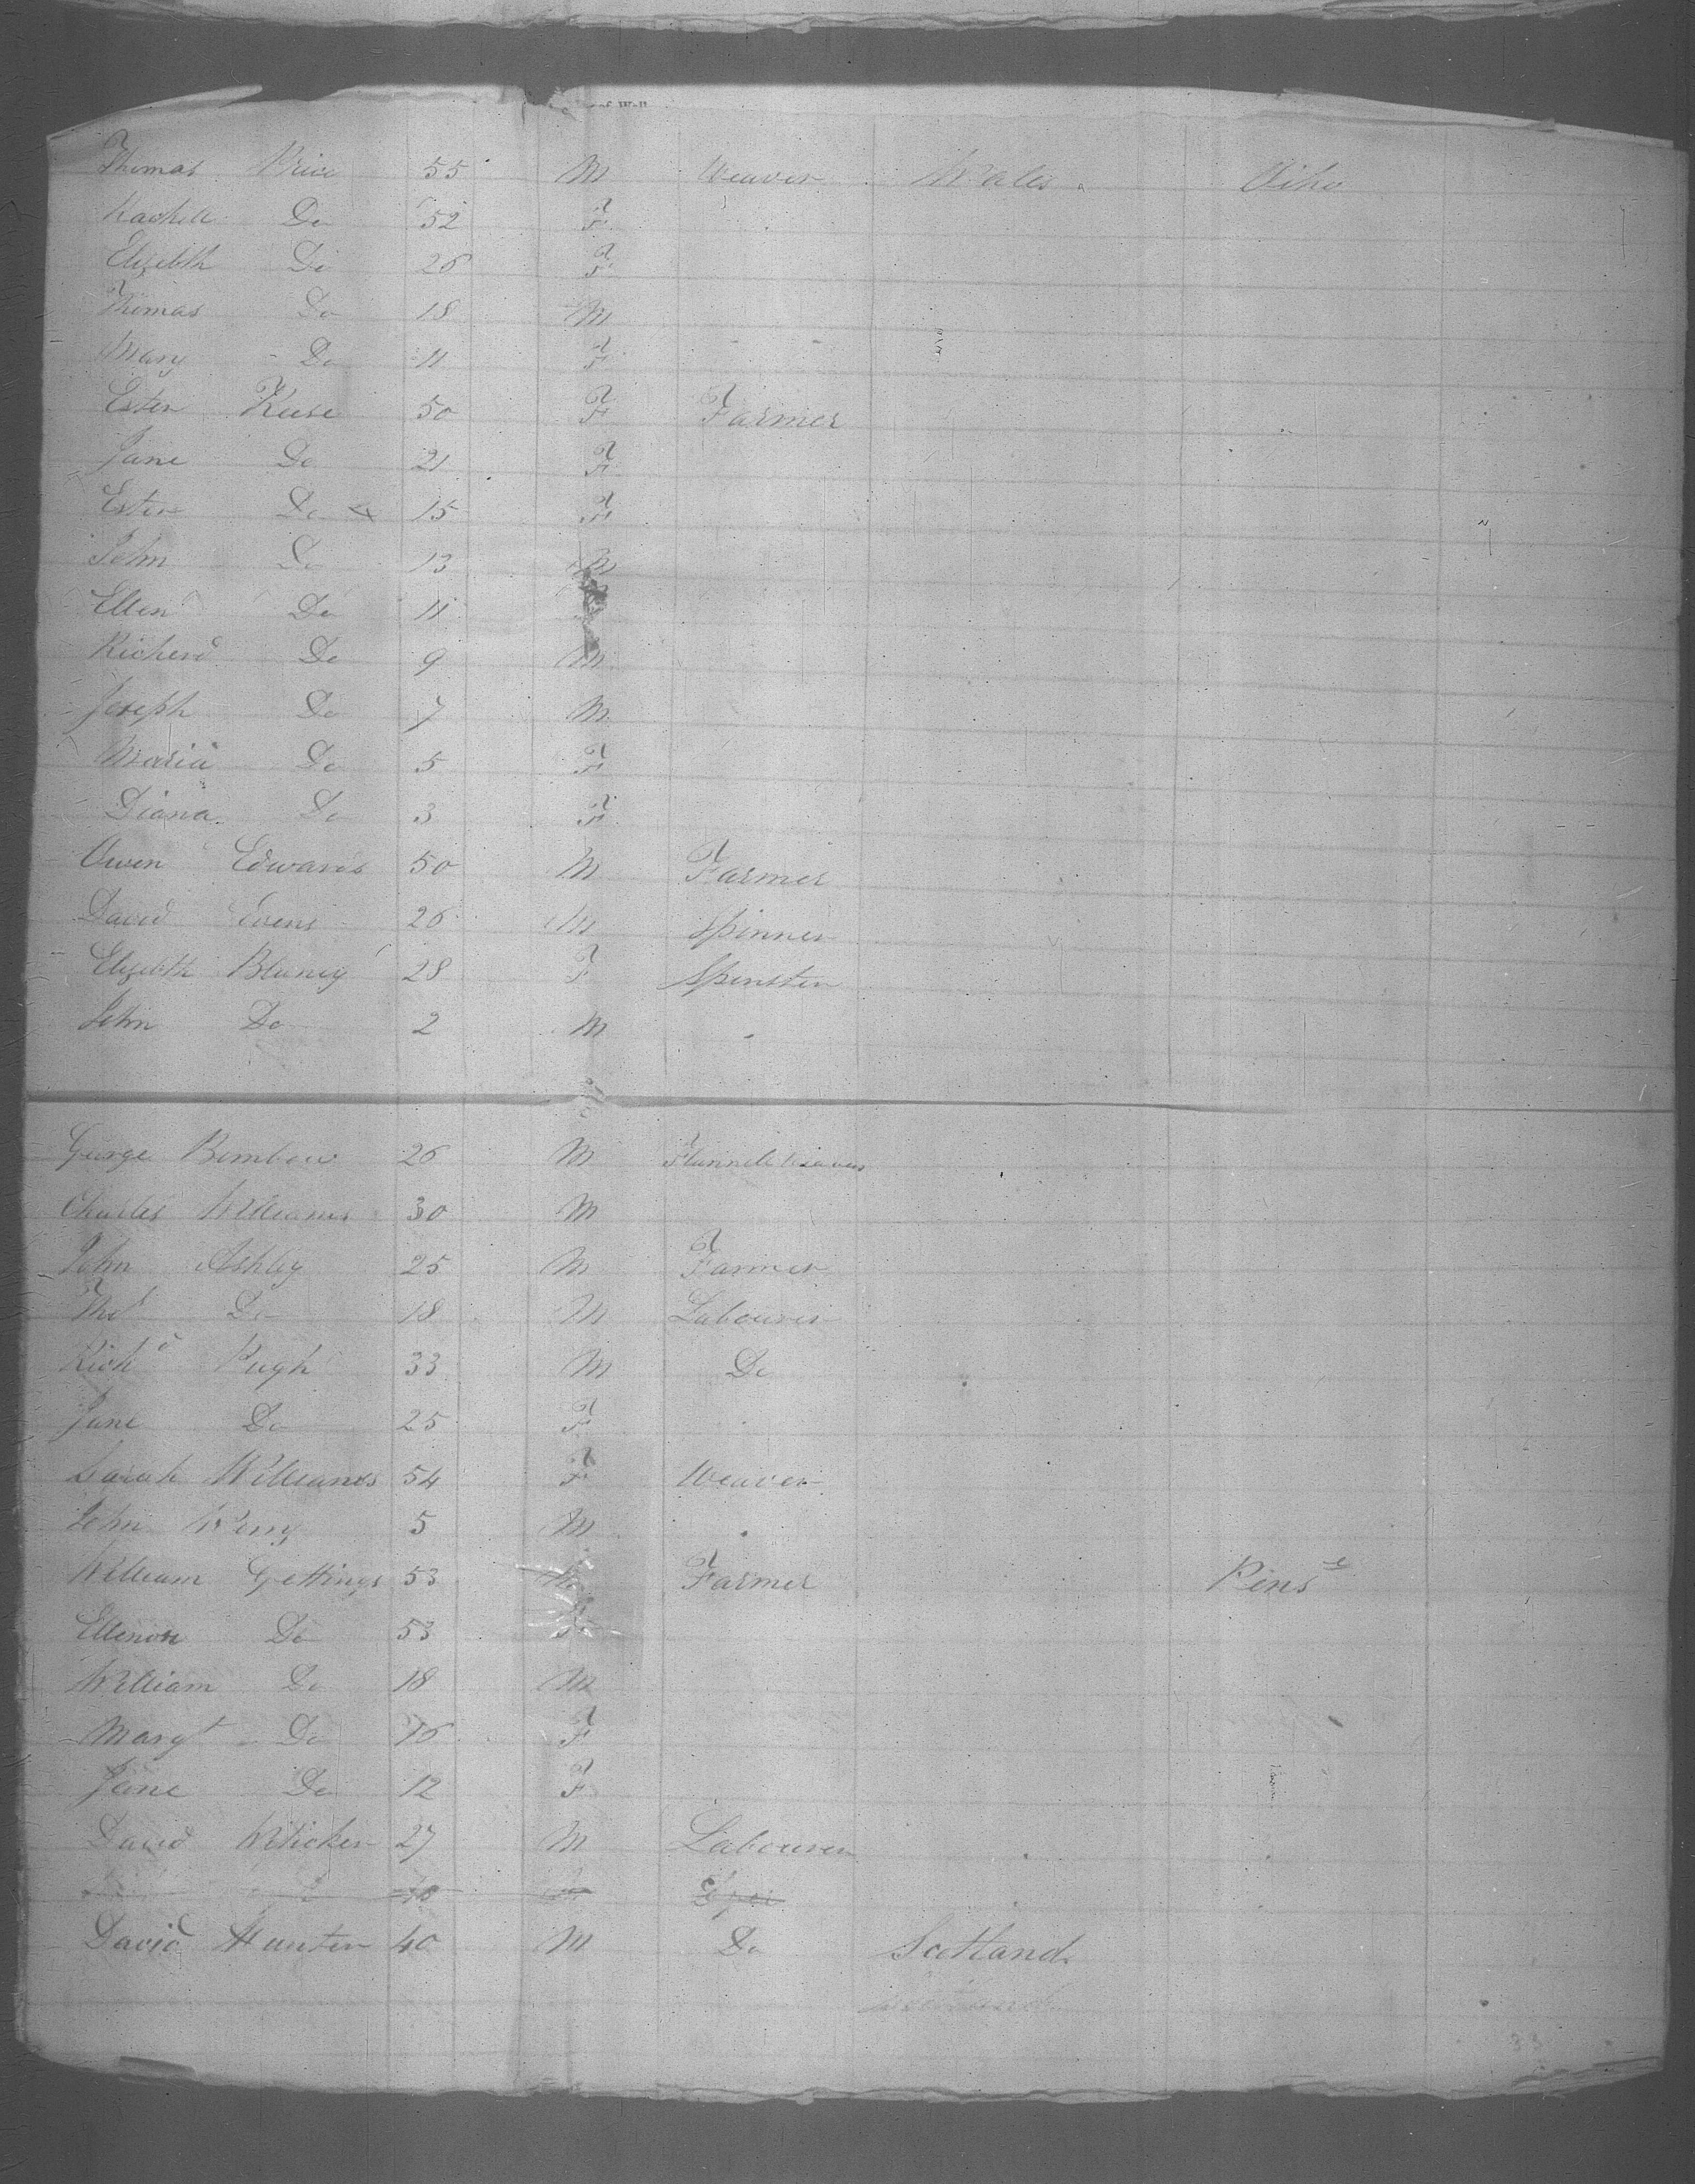 Thomas Price 55 M Weaver Wales Oiho
Rachell Do 52 F
Elizibth Do 26 F
Thomas Do 18 M
Mary Do 11 F
Ester Reese 50 F Farmer
Jane Do 21 F
Ester Do 15 F
John Do 13 M
Ellen Do 11
Richerd Do 9 M
Joseph Do 7 M
Maria Do 5 F
Diana Do 3 F
Owen Edwards 50 M Farmer
David Evens 26 M Spinner
Elizibth Blaney 28 F Spinster
John Do 2 M
George Bembow 26 M Flannell Weaver
Charles Williams 30 M
John Ashley 25 M Farmer
Thos Do 18 M Labourer
Richd Pugh 33 M Do
Jane Do 25 F
Sarah Williames 54 F Weaver
John 5 M
William Gettings 53 M Farmer
Ellenor Do 53 F
William Do 18 M
Margt Do 16 F
Jane Do 12 F
David 27 M Labourer
David Hunter 40 M Do Scotland